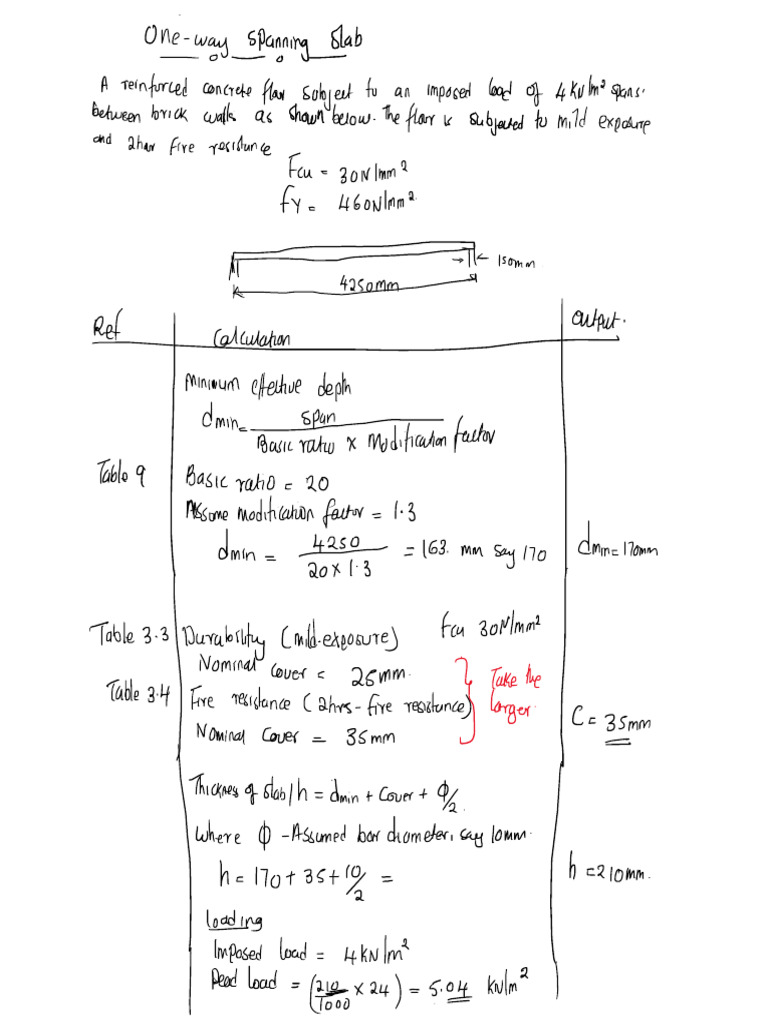 One-way spanning slab
A reinforced concrete floor subject to an imposed load of 4kN/m² spans
between brick walls as shown below. The floor is subjected to mild exposure
and 2hour fire resistance
Fcu = 30N/mm²
fy = 460N/mm²
150mm
4250mm
Ref
Calculation
Output.
Minimum effective depth
dmin = span
Basic ratio x Modification factor
Table 9
Basic ratio = 20
Assume modification factor = 1.3
dmin = 4250 = 163. mm say 170
20 x 1.3
dmin = 170mm
Table 3.3
Durability (mild-exposure) fcu 30N/mm²
Nominal cover = 25mm.
Table 3.4
Fire resistance (2hrs-fire resistance)
Nominal Cover = 35mm
Take the
larger.
C = 35mm
Thickness of slab/h = dmin + Cover + Φ/2.
Where Φ - Assumed bar diameter, say 10mm.
h = 170 + 35 + 10/2 =
h = 210mm.
Loading
Imposed load = 4kN/m²
Dead load = (210/1000 x 24) = 5.04 kN/m²